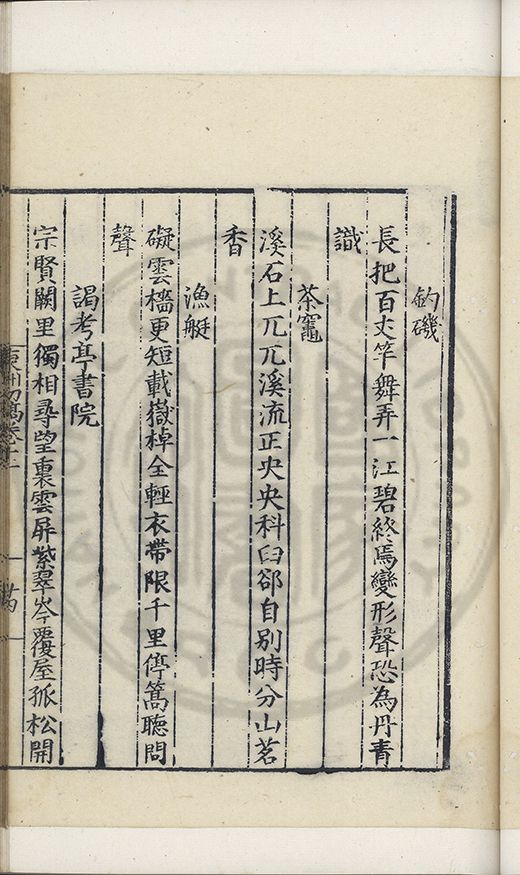 釣磯
長把百丈竿舞弄一江碧終焉變形聲恐為丹青
識
茶竈
溪石上兀兀溪流正央央科臼郤自別時分山茗
香
漁艇
礙雲檣更短載嶽棹全輕衣帶限千里停篙聽問
聲
謁考亭書院
宗賢闕里獨相尋望裏雲屏紫翠岑覆屋孤松開